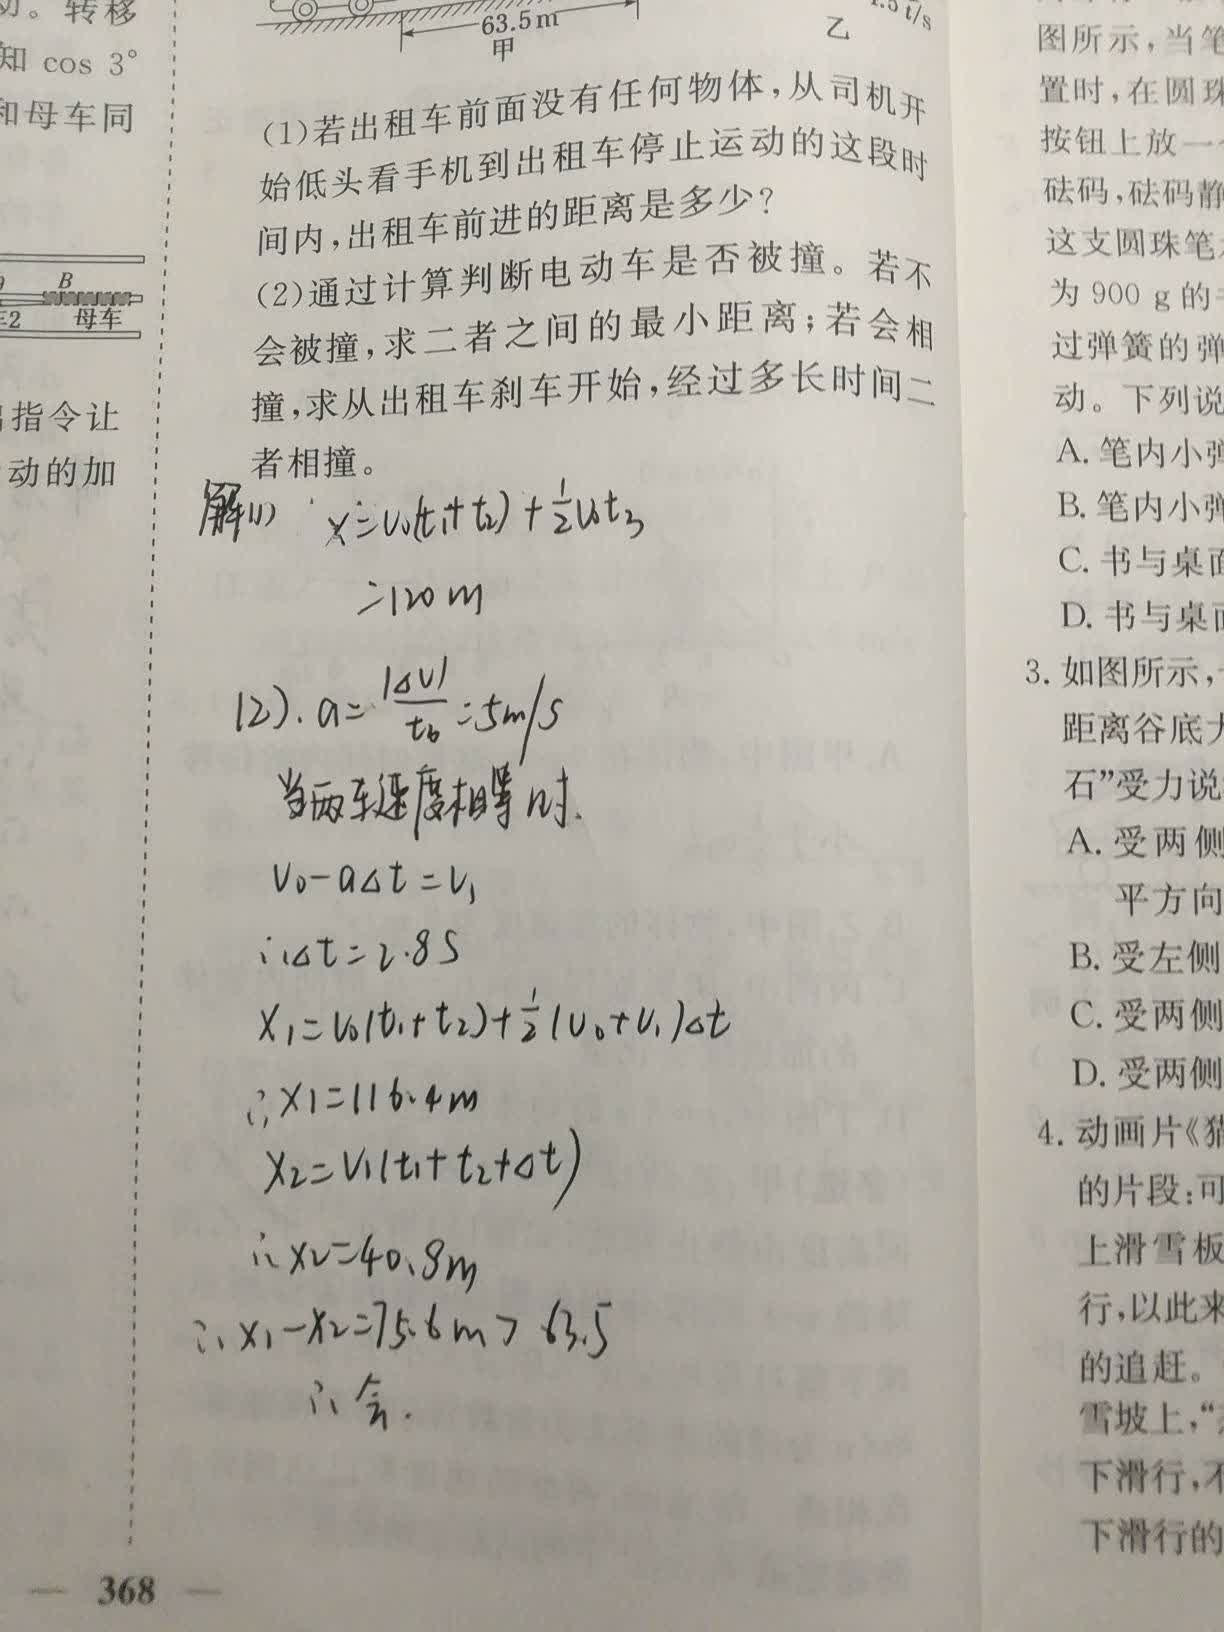 动。转移
知 cos 3°
和母车同
B
车2 母车
出指令让
动的加
63.5 m
甲
4.5 t/s
乙
(1)若出租车前面没有任何物体,从司机开
始低头看手机到出租车停止运动的这段时
间内,出租车前进的距离是多少?
(2)通过计算判断电动车是否被撞。若不
会被撞,求二者之间的最小距离;若会相
撞,求从出租车刹车开始,经过多长时间二
者相撞。
解(1) x=v₀(t₁+t₂)+½v₀t₃
=120m
(2). a=|Δv|/t₆=5m/s
当两车速度相等时.
v₀-aΔt=v₁
∴Δt=2.8S
x₁=v₀(t₁+t₂)+½(v₀+v₁)Δt
∴x₁=116.4m
x₂=v₁(t₁+t₂+Δt)
∴x₂=40.8m
∴x₁-x₂=75.6m>63.5
∴会.
368
图所示,当笔
置时,在圆珠
按钮上放一
砝码,砝码静
这支圆珠笔
为 900 g 的
过弹簧的弹
动。下列说
A. 笔内小弹
B. 笔内小弹
C. 书与桌面
D. 书与桌面
3. 如图所示,
距离谷底大
石”受力说
A. 受两侧
平方向
B. 受左侧
C. 受两侧
D. 受两侧
4. 动画片《猫
的片段:可
上滑雪板
行,以此来
的追赶。
雪坡上,“
下滑行,不
下滑行的